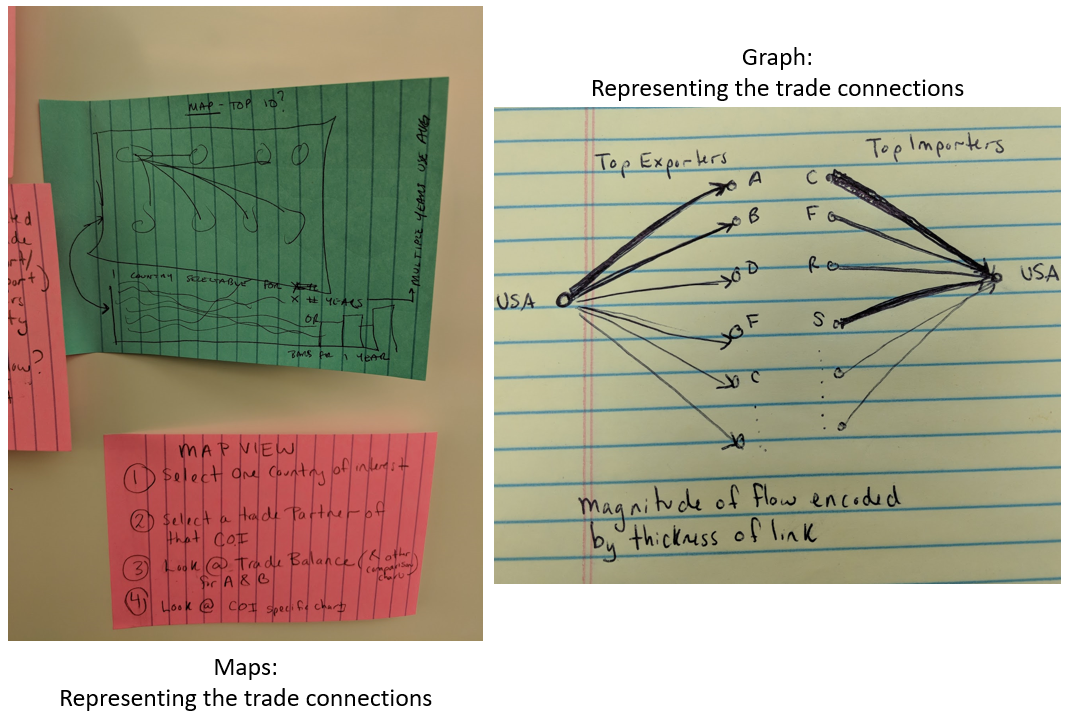 MAP - TOP 10?
MULTIPLE YEARS USE AVG
1 COUNTRY SELECTABLE FOR
X # YEARS
OR
BARS FOR 1 YEAR
ed
de
rt/
port)
rs
ty
low?
A
MAP VIEW
1 Select One Country of interest
2 Select a trade Partner of
that COI
3 Look @ Trade Balance (& other
comparison
charts)
for A & B
4 Look @ COI specific charts
Maps:
Representing the trade connections
Graph:
Representing the trade connections
Top Exporters
Top Importers
A
B
D
F
C
USA
C
F
R
S
USA
Magnitude of flow encoded
by thickness of link